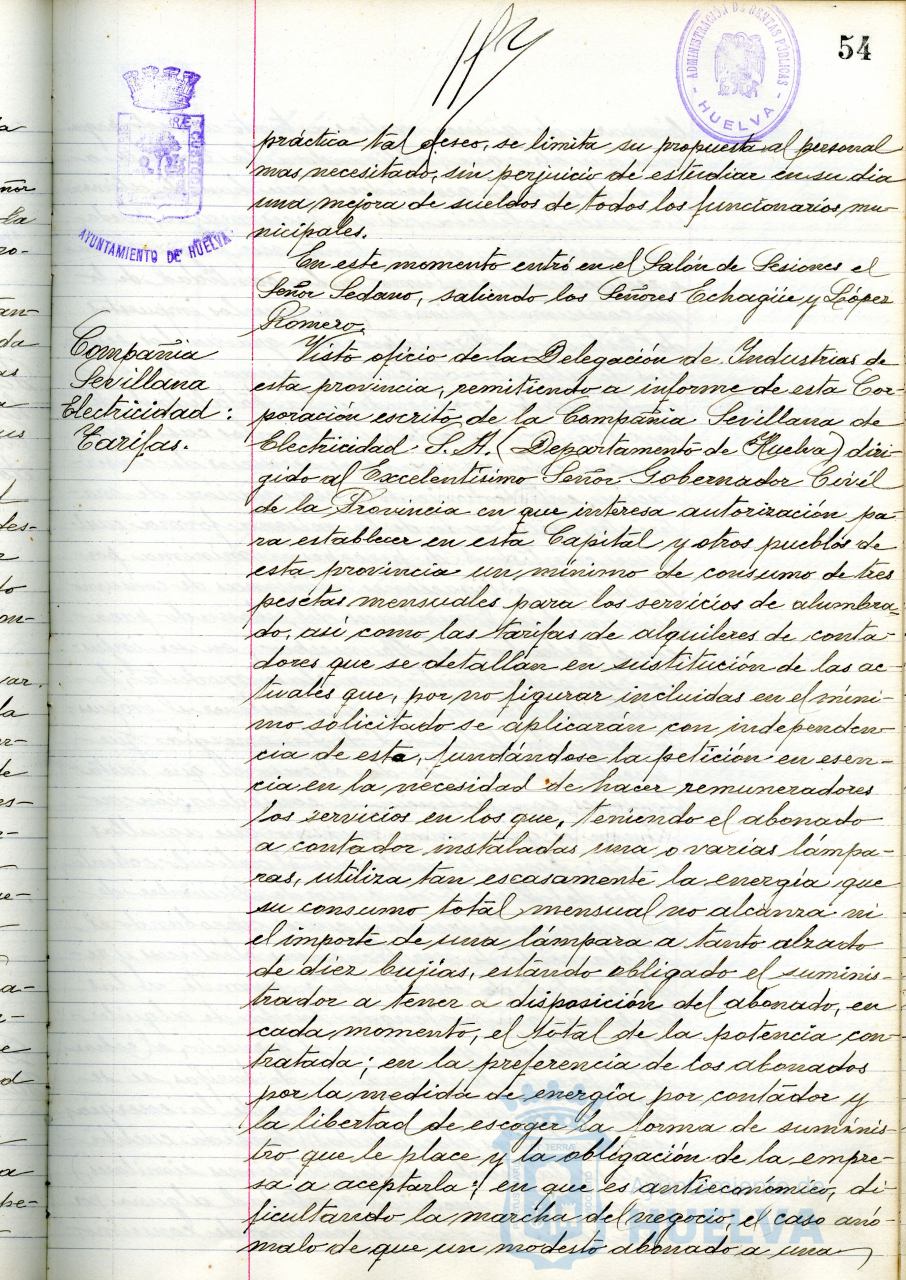 54
ADMINISTRACIÓN DE RENTAS PÚBLICAS
HUELVA
AYUNTAMIENTO DE HUELVA
práctica tal deseo, se limita su propuesta al personal
mas necesitado, sin perjuicio de estudiar en su dia
una mejora de sueldos de todos los funcionarios mu-
nicipales.
En este momento entró en el Salón de Sesiones el
Señor Sedano, saliendo los Señores Echagüe y López
Romero.
Compañia
Sevillana
Electricidad:
Tarifas.
Visto oficio de la Delegación de Industrias de
esta provincia, remitiendo a informe de esta Cor-
poración escrito de la Compañia Sevillana de
Electricidad S.A. (Departamento de Huelva) diri-
gido al Excelentísimo Señor Gobernador Civil
de la Provincia en que interesa autorización pa-
ra establecer en esta Capital y otros pueblos de
esta provincia un mínimo de consumo de tres
pesetas mensuales para los servicios de alumbra-
do, así como las tarifas de alquileres de conta-
dores que se detallan en sustitución de las ac-
tuales que, por no figurar incluidas en el míni-
mo solicitado se aplicarán con independen-
cia de esta, fundándose la petición en esen-
cia en la necesidad de hacer remuneradores
los servicios en los que, teniendo el abonado
a contador instaladas una o varias lámpa-
ras, utiliza tan escasamente la energía que
su consumo total mensual no alcanza ni
el importe de una lámpara a tanto alzado
de diez bujías, estando obligado el suminis-
trador a tener a disposición del abonado, en
cada momento, el total de la potencia con-
tratada; en la preferencia de los abonados
por la medida de energía por contador y
la libertad de escoger la forma de suminis-
tro que le place y la obligación de la empre-
sa a aceptarla; en que es antieconómico, di-
ficultando la marcha del negocio, el caso anó-
malo de que un modesto abonado a una
Ayuntamiento de
HUELVA